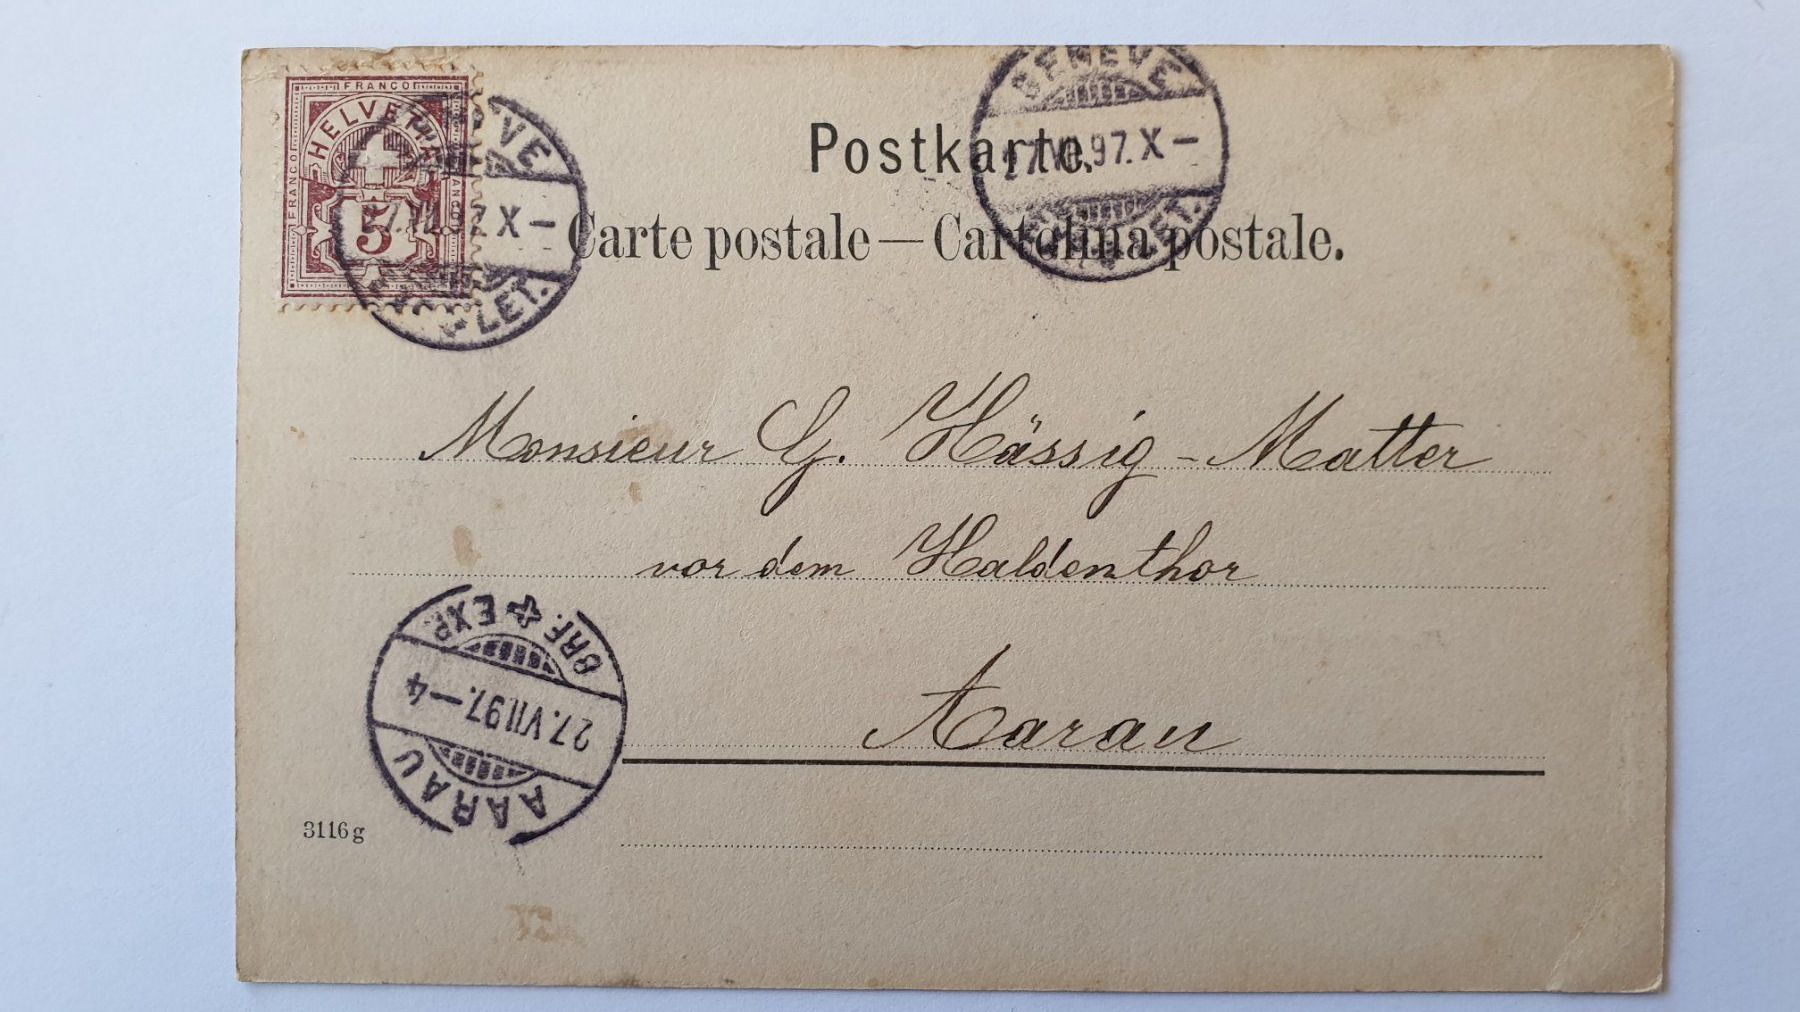 FRANCO
HELVETIA
FRANCO
FRANCO
5
VE
X—
LET.
GENÈVE
VII.97.X—
LET.
Postkarte.
Carte postale — Cartolina postale.
Monsieur G. Hässig-Matter
vor dem Haldenthor
Aarau
BRF. EXP.
27.VII.97.—4
AARAU
3116g